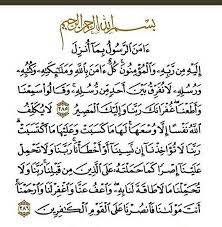 بِسْمِ ٱللَّهِ ٱلرَّحْمَٰنِ ٱلرَّحِيمِ
ءَامَنَ ٱلرَّسُولُ بِمَآ أُنزِلَ
إِلَيْهِ مِن رَّبِّهِۦ وَٱلْمُؤْمِنُونَ كُلٌّ ءَامَنَ بِٱللَّهِ وَمَلَٰٓئِكَتِهِۦ وَكُتُبِهِۦ
وَرُسُلِهِۦ لَا نُفَرِّقُ بَيْنَ أَحَدٍ مِّن رُّسُلِهِۦ وَقَالُوا۟ سَمِعْنَا
وَأَطَعْنَا غُفْرَانَكَ رَبَّنَا وَإِلَيْكَ ٱلْمَصِيرُ ٢٨٥ لَا يُكَلِّفُ
ٱللَّهُ نَفْسًا إِلَّا وُسْعَهَا لَهَا مَا كَسَبَتْ وَعَلَيْهَا مَا ٱكْتَسَبَتْ
رَبَّنَا لَا تُؤَاخِذْنَآ إِن نَّسِينَآ أَوْ أَخْطَأْنَا رَبَّنَا وَلَا تَحْمِلْ
عَلَيْنَآ إِصْرًا كَمَا حَمَلْتَهُۥ عَلَى ٱلَّذِينَ مِن قَبْلِنَا رَبَّنَا وَلَا
تُحَمِّلْنَا مَا لَا طَاقَةَ لَنَا بِهِۦ وَٱعْفُ عَنَّا وَٱغْفِرْ لَنَا وَٱرْحَمْنَآ
أَنتَ مَوْلَىٰنَا فَٱنصُرْنَا عَلَى ٱلْقَوْمِ ٱلْكَٰفِرِينَ ٢٨٦